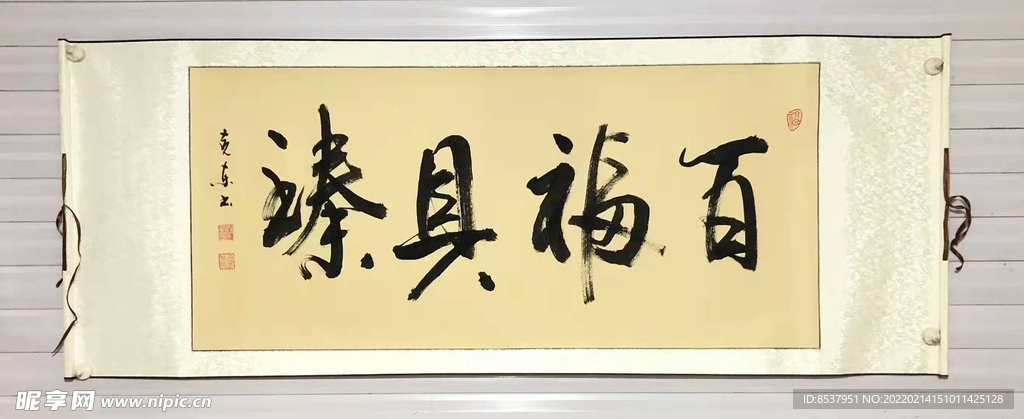 百福具臻
克东书
昵享网 www.nipic.cn
ID:8537951 NO:20220214151011425128